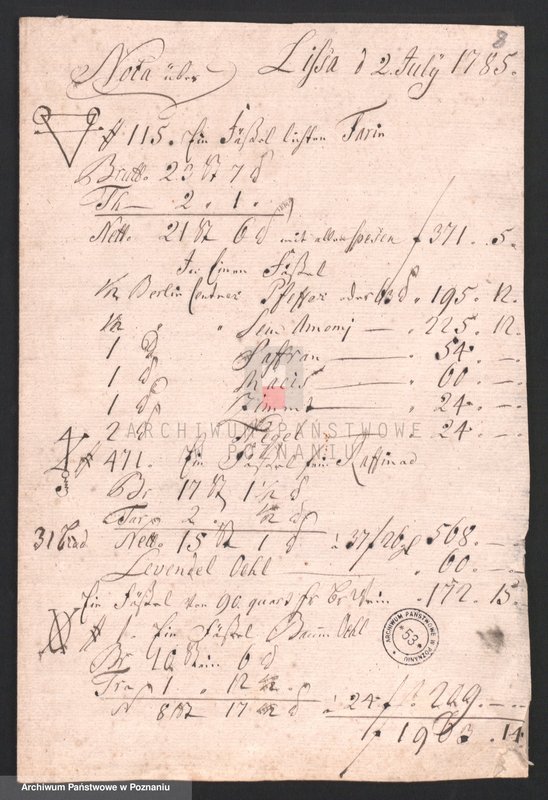 8
Nota über Lissa d 2. July 1785.
# 115. Ein Fässel lichten Farin
Brutto 23 St 7 d
Th 2 " 1 "
Netto 21 St 6 d mit allen spesen f 371. 5.
In Einen Fässel
1/2 Berlin Centner Pfeffer oder d " 195. 12.
1/2 " " " 225. 12.
1 d Saffran " 54. —
1 d Macis " 60. —
1 d Zimmt " 24. —
2 d " 24. —
# 471. Ein Fässel fein Raffinad
Br 17 St 1 1/2 d
Tara 2 " 1/2 d
Netto 15 St 1 d à 37 f 26 g 568. —
Levendel Oehl " 60. —
Ein Fässel von 90. quart fr Br Wein " 172. 15
# Ein Fässel Baum Oehl
Br 10 Stein 6 d
Tra 1 " 12
N 8 St 17 d à 24 f 209. —
f 1963. 14
ARCHIWUM PAŃSTWOWE
W POZNANIU
ARCHIWUM PAŃSTWOWE W POZNANIU
53
Archiwum Państwowe w Poznaniu